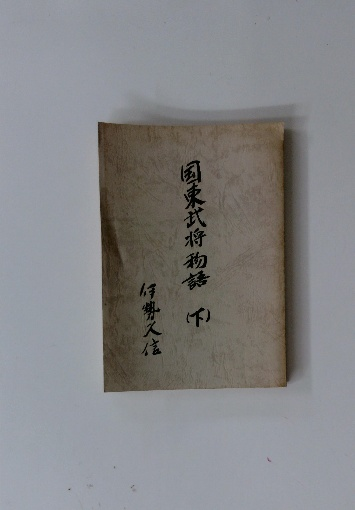 国東武将物語 (下)
伊勢久信